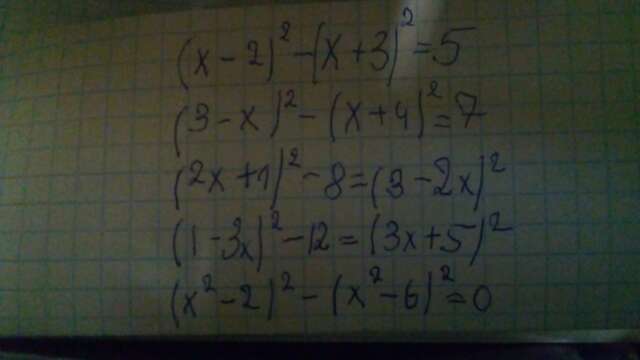 (x-2)²-(x+3)²=5
(3-x)²-(x+4)²=7
(2x+1)²-8=(3-2x)²
(1-3x)²-12=(3x+5)²
(x²-2)²-(x²-6)²=0